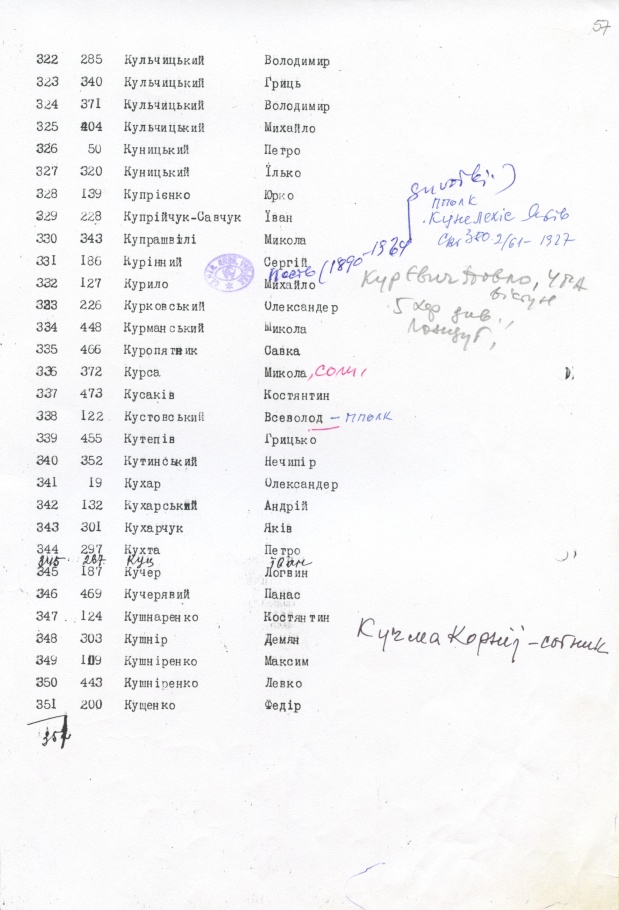 57
322 285 Кульчицький Володимир
323 340 Кульчицький Гриць
324 371 Кульчицький Володимир
325 404 Кульчицький Михайло
326 50 Куницький Петро
327 320 Куницький Ілько
328 139 Купрієнко Юрко
329 228 Купрійчук-Савчук Іван
330 343 Купрашвілі Микола
331 186 Курінний Сергій
332 127 Курило Михайло
323 226 Курковський Олександер
334 448 Курманський Микола
335 466 Куропятник Савка
336 372 Курса Микола, сотн,
337 473 Кусаків Костянтин
338 122 Кустовський Всеволод – ппполк
339 455 Кутепів Грицько
340 352 Кутинський Нечипір
341 19 Кухар Олександер
342 132 Кухарський Андрій
343 301 Кухарчук Яків
344 297 Кухта Петро
345 267 Куц Іван
345 187 Кучер Логвин
346 469 Кучерявий Панас
347 124 Кушнаренко Костянтин
348 303 Кушнір Демян
349 109 Кушніренко Максим
350 443 Кушніренко Левко
351 200 Кущенко Федір
(1890-1964
ппполк
2/61-1927
Павло, УНА
5 Хер див.
Кучма Корній - сотник